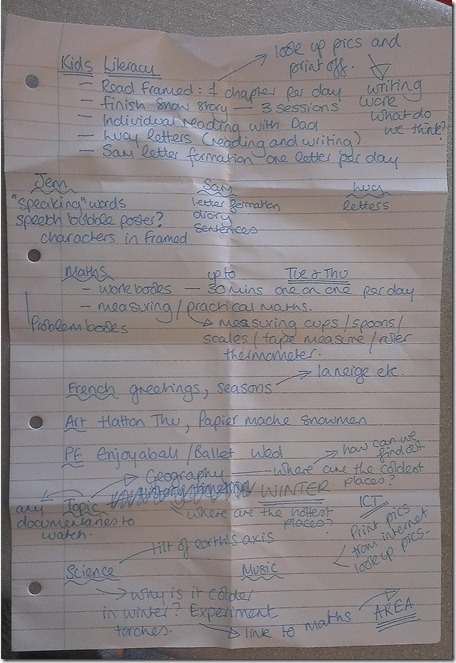 Kids Literacy
look up pics and
print off.
- Read Framed: 1 chapter per day
- Finish snow story - 3 sessions
- Individual reading with Dad
- Lucy letters (reading and writing)
- Sam letter formation one letter per day
writing
work
what do
we think?
Jenn
"speaking" words
speech bubble poster?
characters in Framed
Sam
letter formation
diary
sentences
Lucy
letters
Maths
up to
Tue & Thu
- workbooks - 30 mins one on one per day
- measuring / practical maths.
Problem books
measuring cups / spoons /
scales / tape measure / ruler
thermometer.
French greetings, seasons
la neige etc.
Art Hatton Thu, Papier mache snowmen
PE Enjoyaball / Ballet Wed
how can we
find out
Geography
where are the coldest
places?
Topic
WINTER
where are the hottest
places?
any
documentaries to
watch.
ICT
Print pics
from internet
look up pics.
tilt of earth's axis
Science
Music
why is it colder
in winter? Experiment
torches.
link to maths
AREA